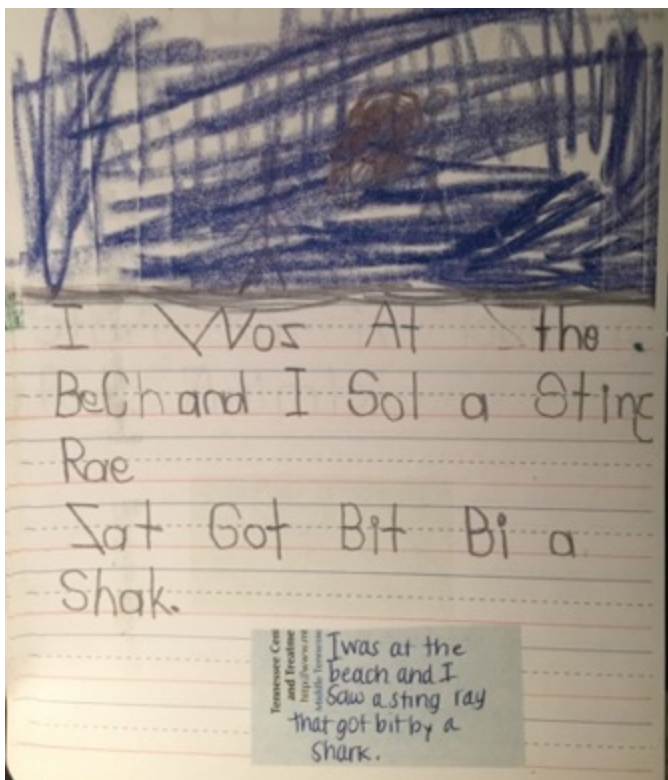 I Wos At the .
BeCh and I Sol a Sting
Rae
Zat Got Bit Bi a
Shak.
Tennessee Cen
and Treatme
http://www.
Middle Tennesse
I was at the
beach and I
Saw a sting ray
that got bit by a
Shark.